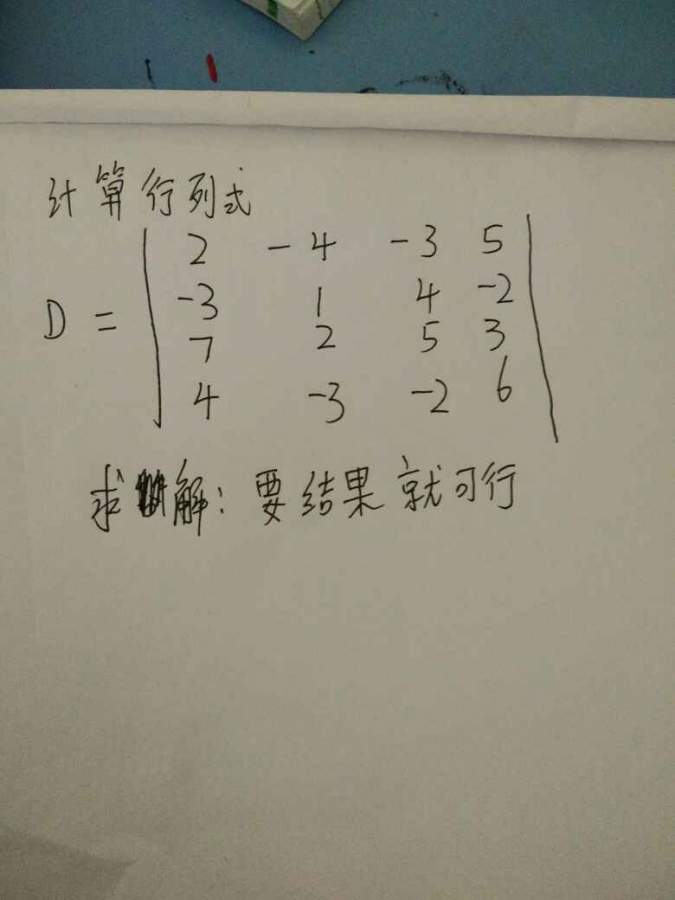 计算行列式
2 -4 -3 5
-3 1 4 -2
D = 7 2 5 3
4 -3 -2 6
求解：要结果就可行